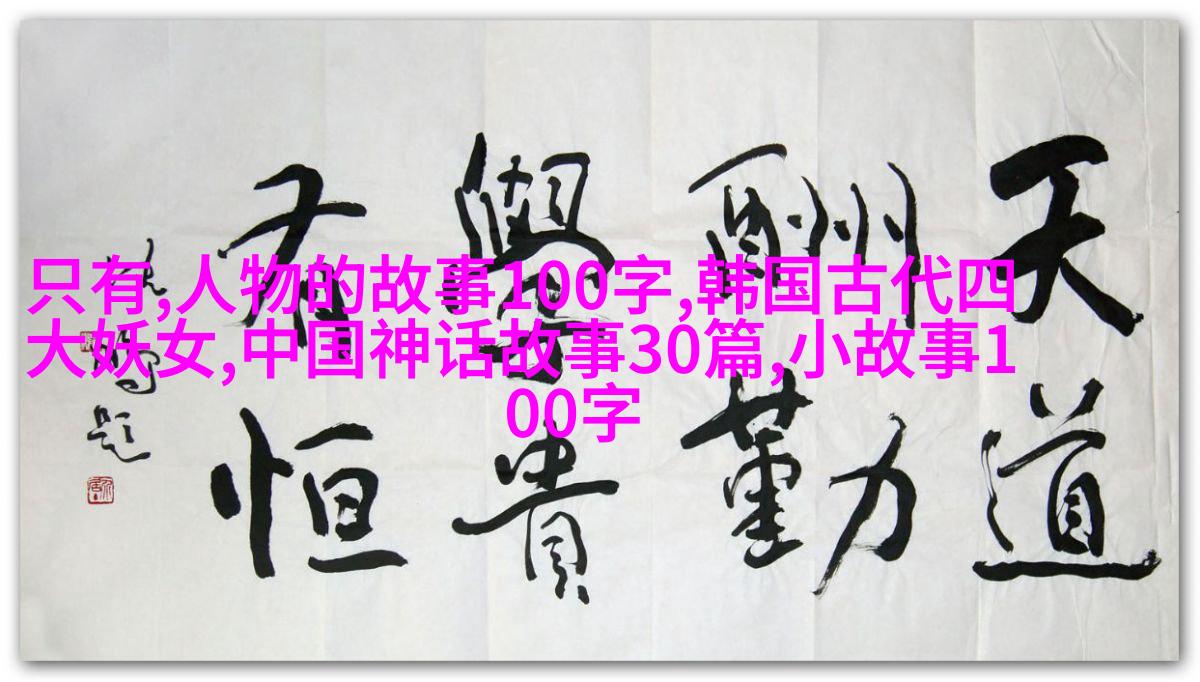 只有,人物的故事100字,韩国古代四
大妖女,中国神话故事30篇,小故事1
00字
天道
酬勤
學貴
有恒
題